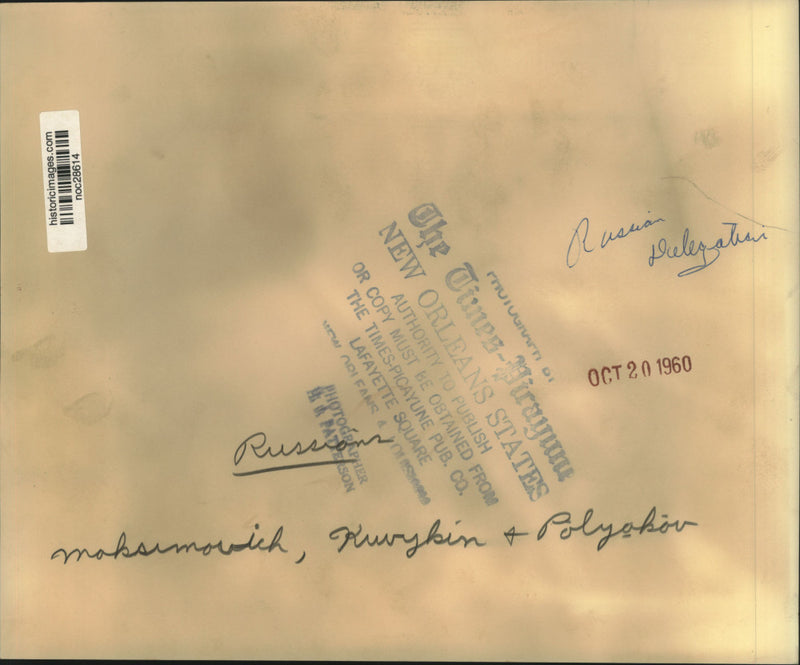 historicimages.com
noc28614
Russian
Delegation
OCT 20 1960
PHOTOGRAPH BY
The Times-Picayune
NEW ORLEANS STATES
AUTHORITY TO PUBLISH
OR COPY MUST BE OBTAINED FROM
THE TIMES-PICAYUNE PUB. CO.
LAFAYETTE SQUARE
NEW ORLEANS
PHOTOGRAPHER
PATTERSON
Russians
Maksimovich, Kuvykin + Polyakov